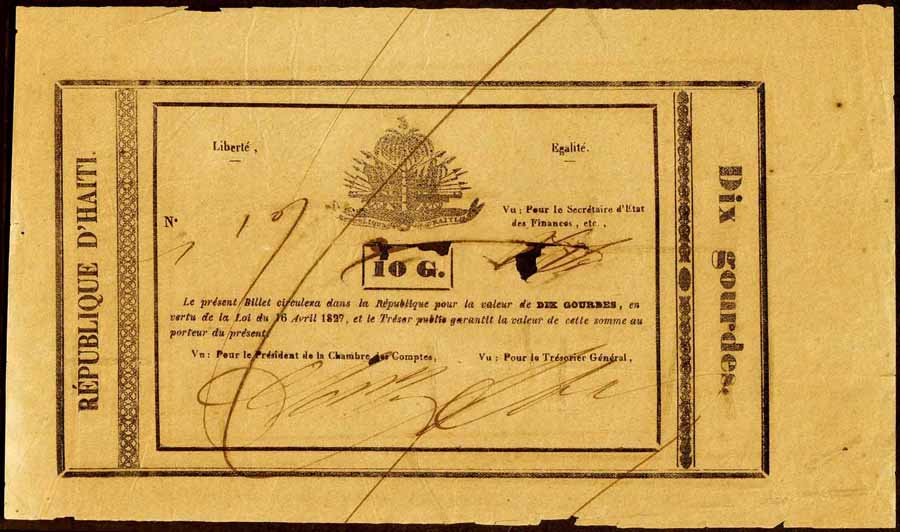 RÉPUBLIQUE D'HAITI.
Liberté,
Egalité.
N°
Vu: Pour le Secrétaire d'Etat
des Finances, etc.,
10 G.
Le présent Billet circulera dans la République pour la valeur de DIX GOURDES, en
vertu de la Loi du 16 Avril 1827, et le Trésor public garantit la valeur de cette somme au
porteur du présent.
Vu: Pour le Président de la Chambre des Comptes,
Vu: Pour le Trésorier Général,
Dix gourdes.